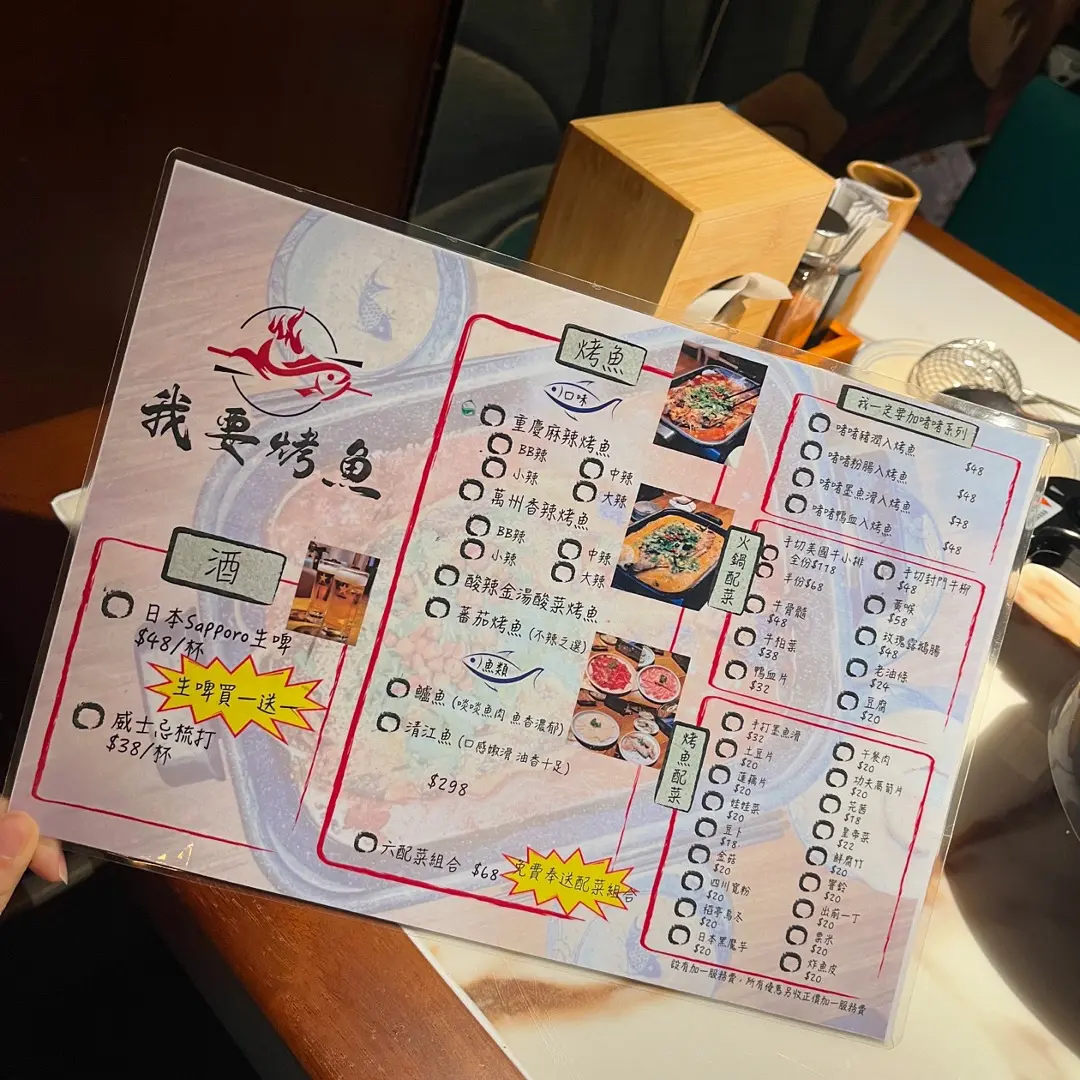 我要烤魚
酒
日本Sapporo生啤
$48/杯
生啤買一送一
威士忌梳打
$38/杯
烤魚
口味
重慶麻辣烤魚
BB辣
小辣
中辣
大辣
萬州香辣烤魚
BB辣
小辣
中辣
大辣
酸辣金湯酸菜烤魚
蕃茄烤魚 (不辣之選)
魚類
鱸魚 (啖啖魚肉 魚香濃郁)
清江魚 (口感嫩滑 油香十足)
$298
六配菜組合 $68
免費奉送配菜組合
我一定要加啫啫系列
啫啫豬潤入烤魚 $48
啫啫粉腸入烤魚 $48
啫啫墨魚滑入烤魚 $78
啫啫鴨血入烤魚 $48
火鍋配菜
手切美國牛小排
全份$118
半份$68
牛骨髓
$48
牛栢葉
$38
鴨血片
$32
手切封門牛柳
$48
黃喉
$58
玫瑰露鵝腸
$48
老油條
$24
豆腐
$20
烤魚配菜
手打墨魚滑
$32
土豆片
$20
蓮藕片
$20
娃娃菜
$20
豆卜
$18
金菇
$20
四川寬粉
$20
稻亭烏冬
$20
日本黑魔芋
$20
午餐肉
$20
功夫萵筍片
$20
芫茜
$18
皇帝菜
$22
鮮腐竹
$20
響鈴
$20
出前一丁
$20
粟米
$20
炸魚皮
$20
設有加一服務費，所有優惠另收正價加一服務費